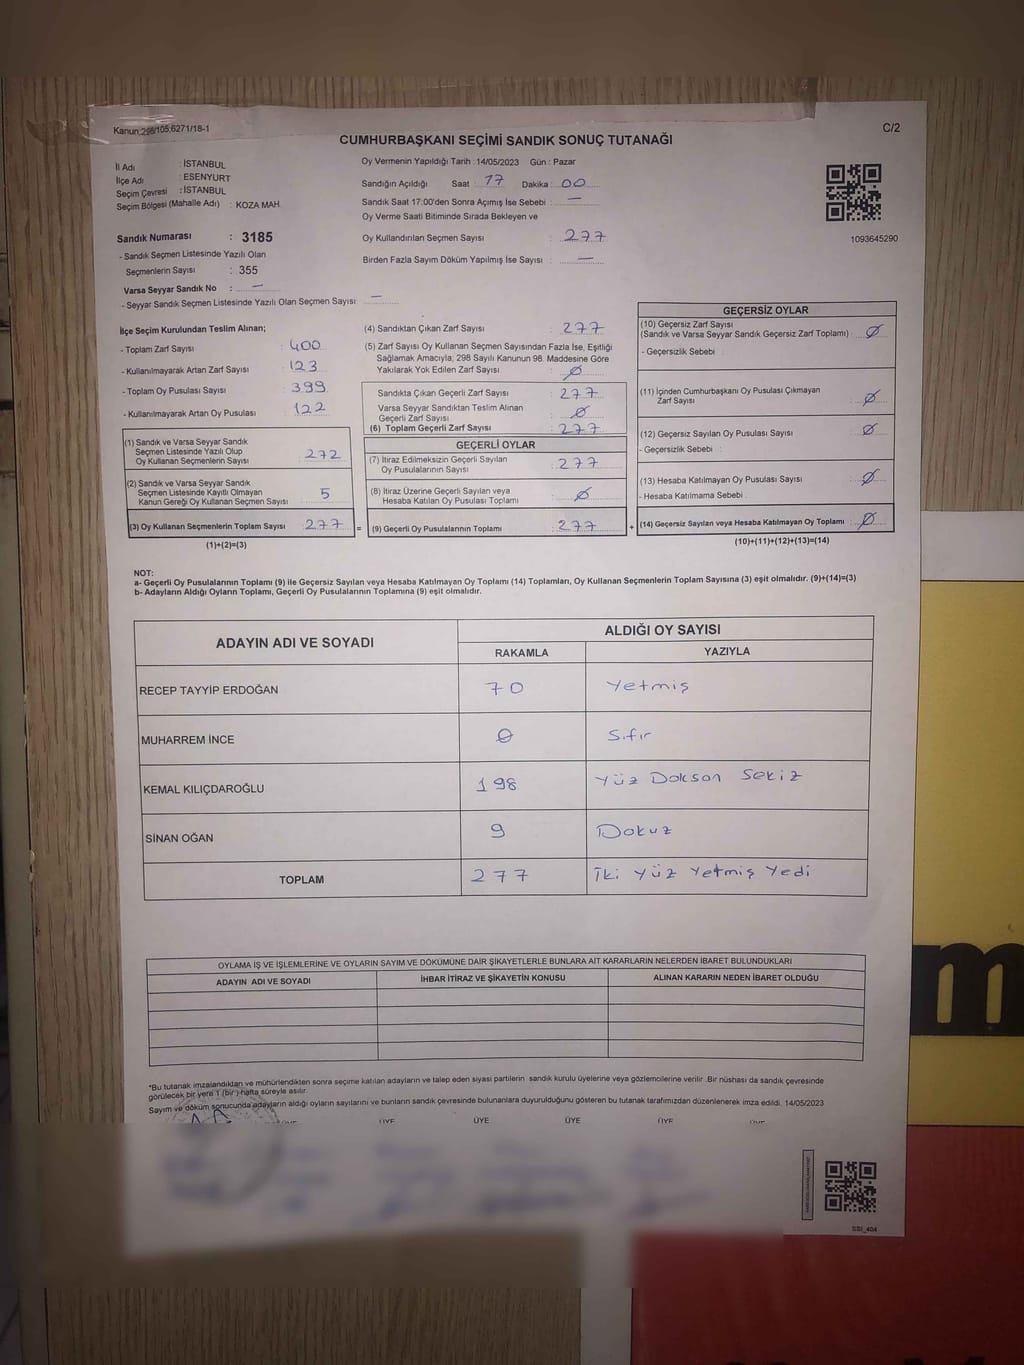 Kanun:298/105;6271/18-1
C/2
CUMHURBAŞKANI SEÇİMİ SANDIK SONUÇ TUTANAĞI
İl Adı : İSTANBUL
İlçe Adı : ESENYURT
Seçim Çevresi : İSTANBUL
Seçim Bölgesi (Mahalle Adı) : KOZA MAH.
Sandık Numarası : 3185
- Sandık Seçmen Listesinde Yazılı Olan
Seçmenlerin Sayısı : 355
Varsa Seyyar Sandık No : —
- Seyyar Sandık Seçmen Listesinde Yazılı Olan Seçmen Sayısı: —
Oy Vermenin Yapıldığı Tarih : 14/05/2023 Gün : Pazar
Sandığın Açıldığı Saat : 17 Dakika : 00
Sandık Saat 17:00'den Sonra Açımış İse Sebebi : —
Oy Verme Saati Bitiminde Sırada Bekleyen ve
Oy Kullandırılan Seçmen Sayısı : 277
Birden Fazla Sayım Döküm Yapılmış İse Sayısı : —
1093645290
İlçe Seçim Kurulundan Teslim Alınan;
- Toplam Zarf Sayısı : 400
- Kullanılmayarak Artan Zarf Sayısı : 123
- Toplam Oy Pusulası Sayısı : 399
- Kullanılmayarak Artan Oy Pusulası : 122
(1) Sandık ve Varsa Seyyar Sandık
Seçmen Listesinde Yazılı Olup
Oy Kullanan Seçmenlerin Sayısı : 272
(2) Sandık ve Varsa Seyyar Sandık
Seçmen Listesinde Kayıtlı Olmayan
Kanun Gereği Oy Kullanan Seçmen Sayısı : 5
(3) Oy Kullanan Seçmenlerin Toplam Sayısı : 277
(1)+(2)=(3)
(4) Sandıktan Çıkan Zarf Sayısı : 277
(5) Zarf Sayısı Oy Kullanan Seçmen Sayısından Fazla İse, Eşitliği
Sağlamak Amacıyla; 298 Sayılı Kanunun 98. Maddesine Göre
Yakılarak Yok Edilen Zarf Sayısı : Ø
Sandıkta Çıkan Geçerli Zarf Sayısı : 277
Varsa Seyyar Sandıktan Teslim Alınan
Geçerli Zarf Sayısı : Ø
(6) Toplam Geçerli Zarf Sayısı : 277
GEÇERLİ OYLAR
(7) İtiraz Edilmeksizin Geçerli Sayılan
Oy Pusulalarının Sayısı : 277
(8) İtiraz Üzerine Geçerli Sayılan veya
Hesaba Katılan Oy Pusulası Toplamı : Ø
= (9) Geçerli Oy Pusulalarının Toplamı : 277 +
GEÇERSİZ OYLAR
(10) Geçersiz Zarf Sayısı
(Sandık ve Varsa Seyyar Sandık Geçersiz Zarf Toplamı) : Ø
- Geçersizlik Sebebi :
(11) İçinden Cumhurbaşkanı Oy Pusulası Çıkmayan
Zarf Sayısı : Ø
(12) Geçersiz Sayılan Oy Pusulası Sayısı : Ø
- Geçersizlik Sebebi :
(13) Hesaba Katılmayan Oy Pusulası Sayısı : Ø
- Hesaba Katılmama Sebebi :
(14) Geçersiz Sayılan veya Hesaba Katılmayan Oy Toplamı : Ø
(10)+(11)+(12)+(13)=(14)
NOT:
a- Geçerli Oy Pusulalarının Toplamı (9) ile Geçersiz Sayılan veya Hesaba Katılmayan Oy Toplamı (14) Toplamları, Oy Kullanan Seçmenlerin Toplam Sayısına (3) eşit olmalıdır. (9)+(14)=(3)
b- Adayların Aldığı Oyların Toplamı, Geçerli Oy Pusulalarının Toplamına (9) eşit olmalıdır.
ADAYIN ADI VE SOYADI
ALDIĞI OY SAYISI
RAKAMLA YAZIYLA
RECEP TAYYİP ERDOĞAN 70 Yetmiş
MUHARREM İNCE 0 Sıfır
KEMAL KILIÇDAROĞLU 198 Yüz Doksan Sekiz
SİNAN OĞAN 9 Dokuz
TOPLAM 277 İki Yüz Yetmiş Yedi
OYLAMA İŞ VE İŞLEMLERİNE VE OYLARIN SAYIM VE DÖKÜMÜNE DAİR ŞİKAYETLERLE BUNLARA AİT KARARLARIN NELERDEN İBARET BULUNDUKLARI
ADAYIN ADI VE SOYADI İHBAR İTİRAZ VE ŞİKAYETİN KONUSU ALINAN KARARIN NEDEN İBARET OLDUĞU
*Bu tutanak imzalandıktan ve mühürlendikten sonra seçime katılan adayların ve talep eden siyasi partilerin sandık kurulu üyelerine veya gözlemcilerine verilir. Bir nüshası da sandık çevresinde
görülecek bir yere 1 (bir) hafta süreyle asılır.
Sayım ve döküm sonucunda adayların aldığı oyların sayılarını ve bunların sandık çevresinde bulunanlara duyurulduğunu gösteren bu tutanak tarafımızdan düzenlenerek imza edildi. 14/05/2023
ÜYE ÜYE ÜYE ÜYE
SSİ_404
m